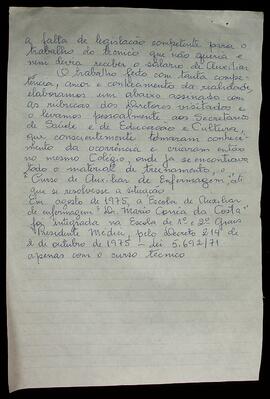 a falta de legislação competente para o
trabalho do técnico que não queria e
nem devia receber o salário de Auxiliar
O trabalho feito com tanta compe-
tência, amor e conhecimento da realidade,
elaboramos um abaixo assinado com
as rubricas dos diretores visitados e
o levamos pessoalmente aos Secretários
de Saúde e de Educação e Cultura,
que conscientemente tomaram conheci-
mento da ocorrência e criaram então
no mesmo Colégio, onde já se encontrava
todo o material de treinamento, o
"Curso de Auxiliar de Enfermagem", até
que se resolvesse a situação
Em agosto de 1975, a Escola de Auxiliar
de enfermagem "Dr. Mario Correa da Costa"
foi integrada na Escola de 1º e 2º Graus
"Presidente Médici", pelo decreto 214 de
2 de outubro de 1975 - lei 5.692/71
apenas com o curso técnico